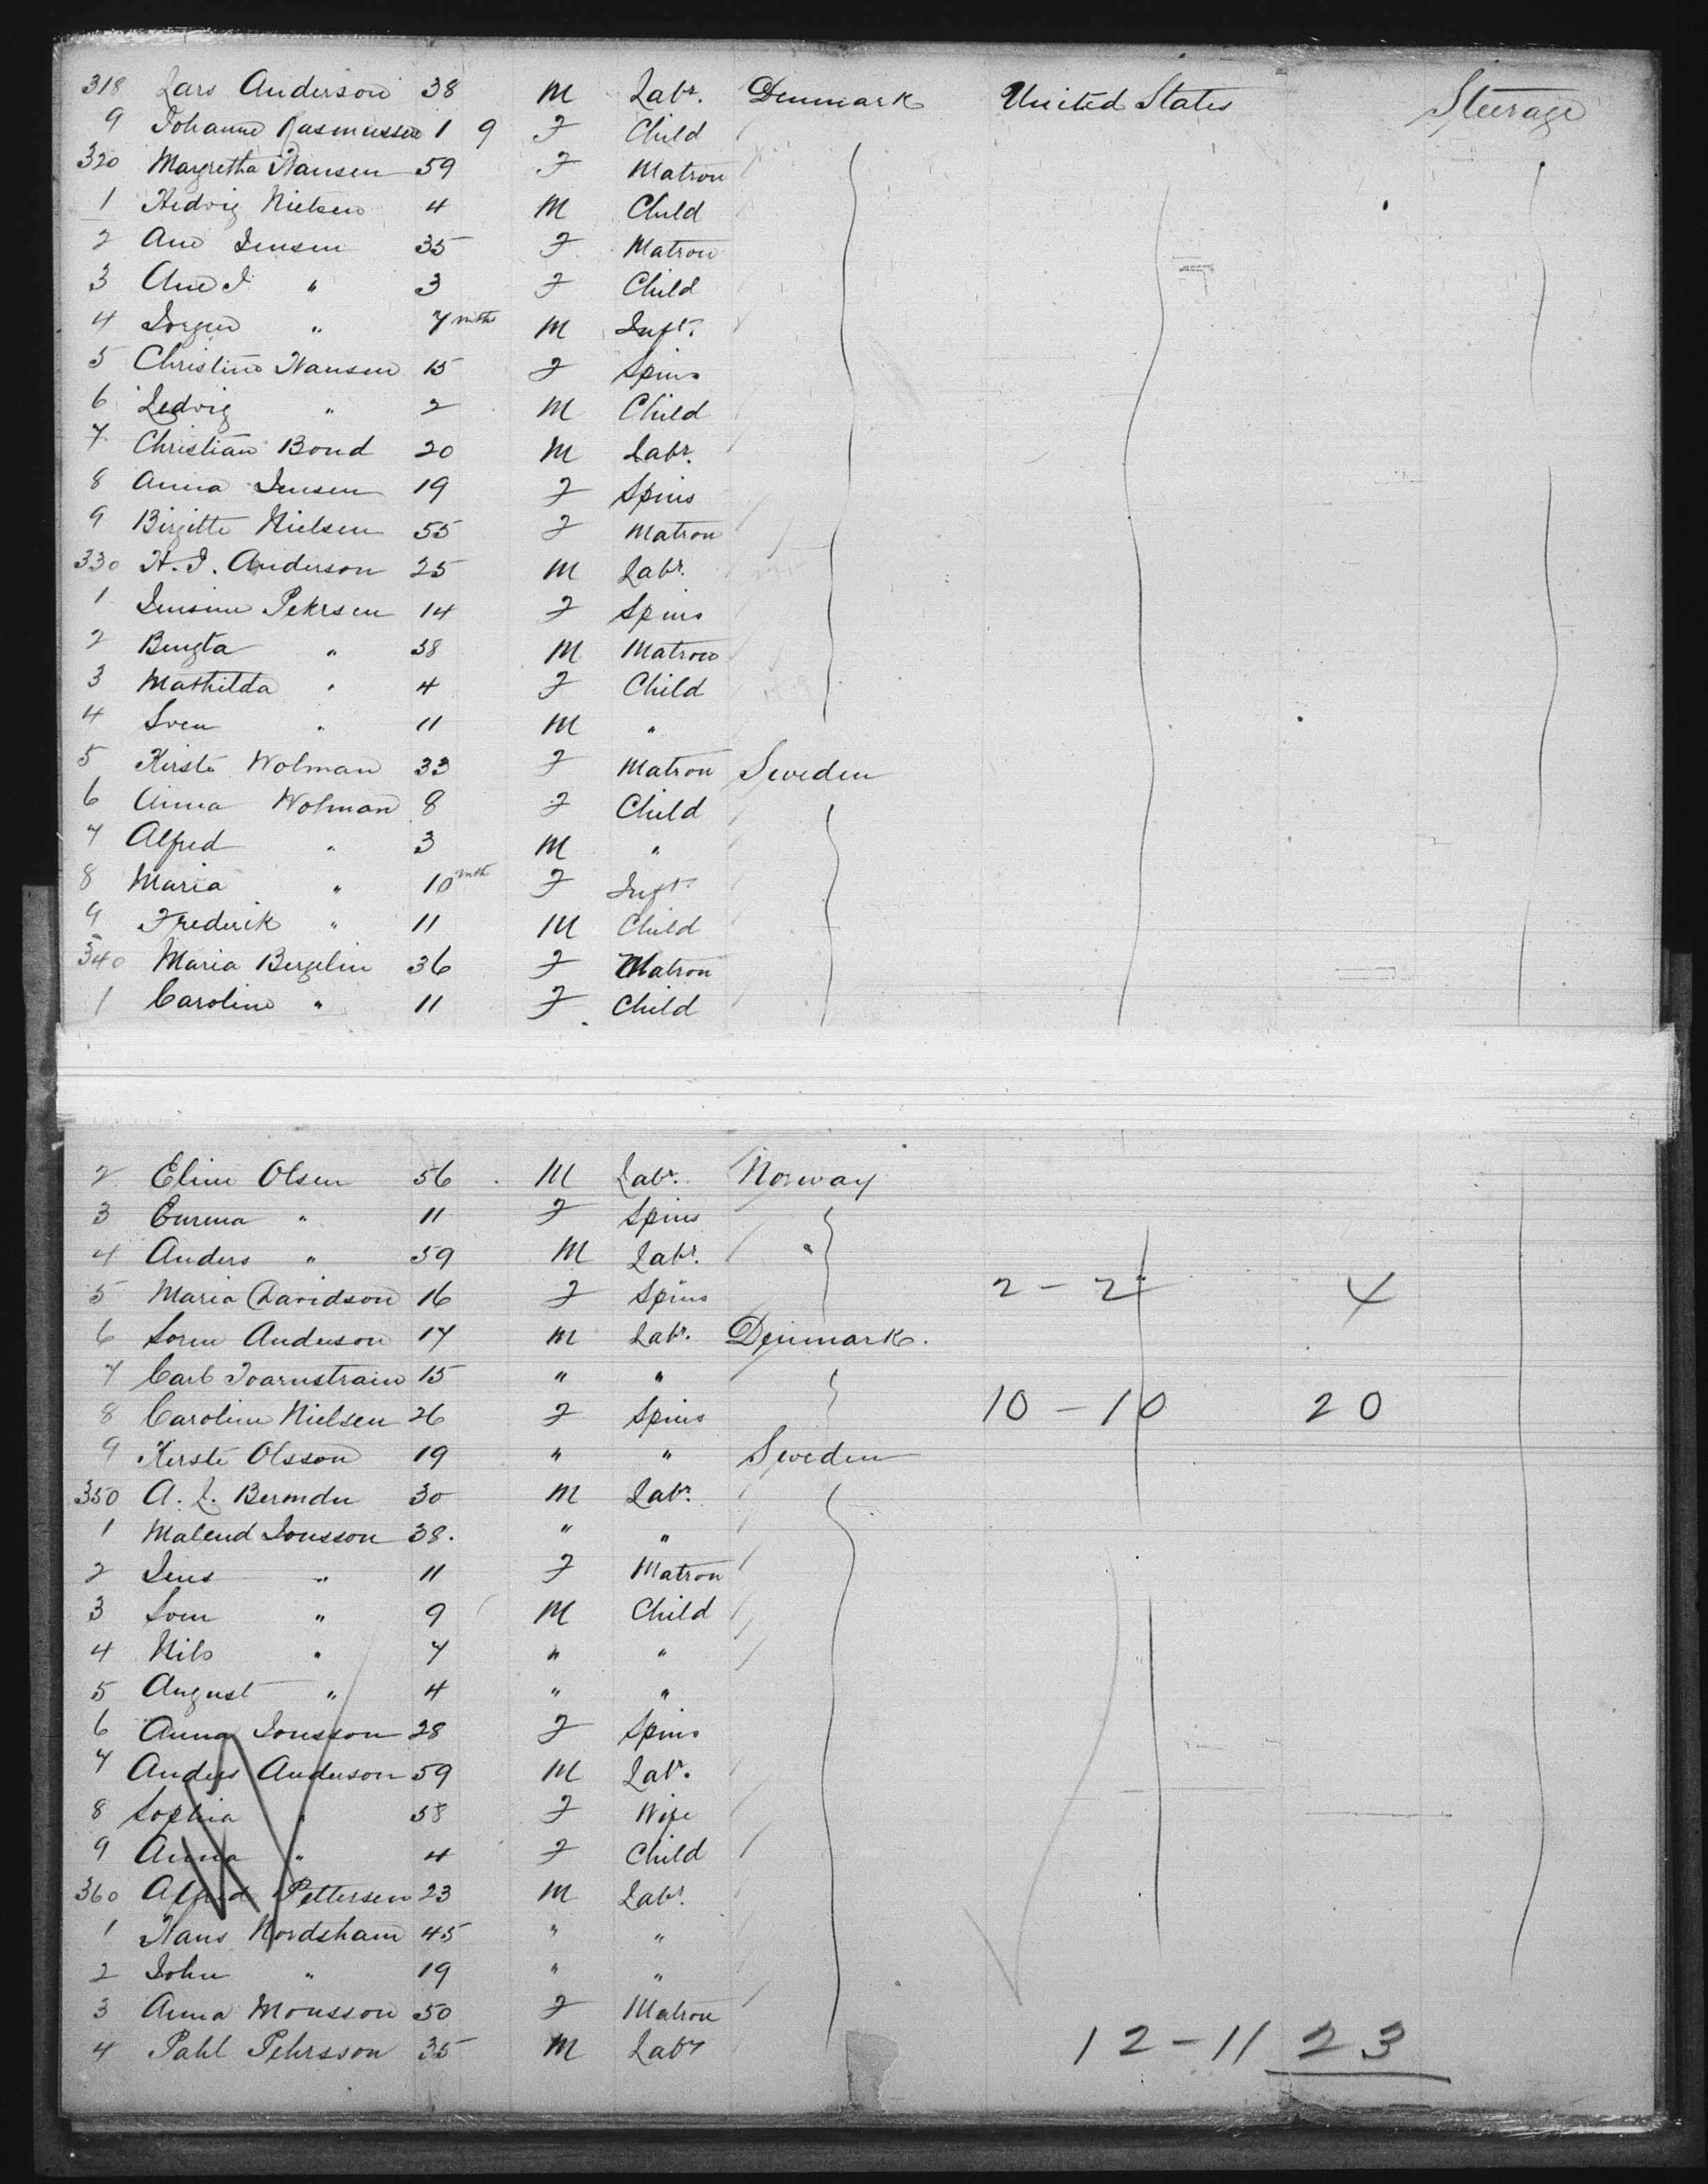 318 Lars Anderson 38 M Labr. Denmark United States Steerage
9 Johanne Rasmussen 1 9 F Child
320 Margretha Hansen 59 F Matron
1 Hedvig Nielsen 4 M Child
2 Ane Jensen 35 F Matron
3 Ane J. " 3 F Child
4 Jorgen " 7 mths M Inft.
5 Christine Hansen 15 F Spins
6 Ledvig " 2 M Child
7 Christian Bond 20 M Labr.
8 Anna Jensen 19 F Spins
9 Birgitte Nielsen 55 F Matron
330 H. J. Anderson 25 M Labr.
1 Jensine Petersen 14 F Spins
2 Bengta " 38 M Matron
3 Mathilda " 4 F Child
4 Sven " 11 M "
5 Kirste Wolman 33 F Matron Sweden
6 Anna Wolman 8 F Child
7 Alfred " 3 M "
8 Maria " 10 mth F Inft.
9 Frederik " 11 M Child
340 Maria Bergelin 36 F Matron
1 Caroline " 11 F Child
2 Eline Olsen 56 M Labr. Norway
3 Emma " 11 F Spins
4 Anders " 59 M Labr.
5 Maria Davidson 16 F Spins 2 - 2 4
6 Soren Anderson 17 M Labr. Denmark.
7 Carl 15 " "
8 Caroline Nielsen 26 F Spins 10 - 10 20
9 Kerste Olsson 19 " " Sweden
350 A. L. 30 M Labr.
1 Jonsson 38. " "
2 Jens " 11 F Matron
3 Sven " 9 M Child
4 Nils " 7 " "
5 August " 4 " "
6 Anna Jonsson 28 F Spins
7 Anders Anderson 59 M Labr.
8 Sophia " 58 F Wife
9 Anna " 4 F Child
360 Alfred Pettersen 23 M Labr.
1 Hans Nordsham 45 " "
2 John " 19 " "
3 Anna Monsson 50 F Matron
4 Pahl Pehrsson 35 M Labr
12 - 11 23